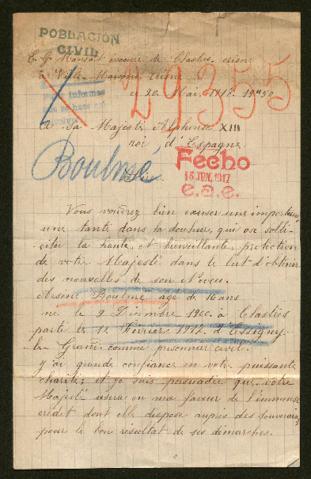 POBLACIÓN
CIVIL
29355
à Sa Majesté Alphonse XIII
roi d'Espagne
Boulmé
Fecho
15 JUN. 1917
Vous voudrez bien excuser une importune
une tante dans la douleur, qui ose solli-
citer la haute et bienveillante protection
de votre Majesté dans le but d'obtenir
des nouvelles de son neveu
Arsène Boulmé âgé de 16 ans
né le 9 Décembre 1900 à Clastres
parti le 12 Février 1917 d'Essigny
le Grand comme prisonnier civil.
J'ai grande confiance en votre puissante
charité et je suis persuadée que votre
Majesté usera en ma faveur de l'immense
crédit dont elle dispose auprès des souverains
pour le bon résultat de ses démarches.